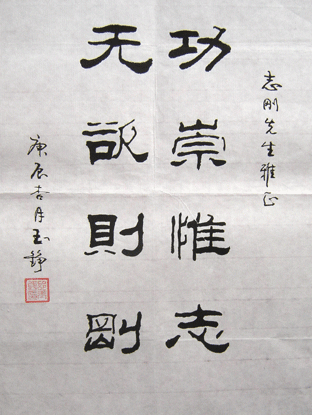 志刚先生雅正
功崇惟志
无欲则刚
庚辰杏月玉铮